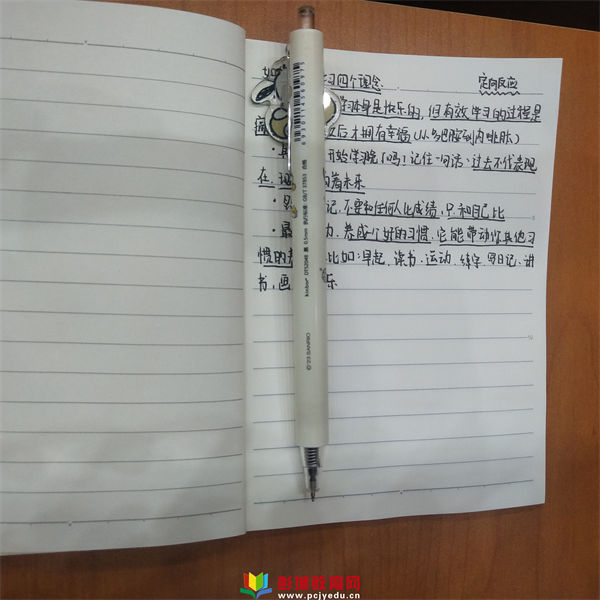 如 习四个理念 定向反应
学习本身是快乐的,但有效学习的过程是
痛 之后才拥有幸福(从多巴胺到内啡肽)
· 开始学习晚了吗?记住一句话:过去不代表现
在 着未来
· 记,不要和任何人比成绩,只和自己比
·最 力,养成个好的习惯,它能带动你其他习
惯的 比如:早起、读书、运动、练字、写日记、讲
书,画 乐
GB/T 37853 合格
0.5mm 黑
©'23 SANRIO
彭城教育网
www.pcjyedu.cn